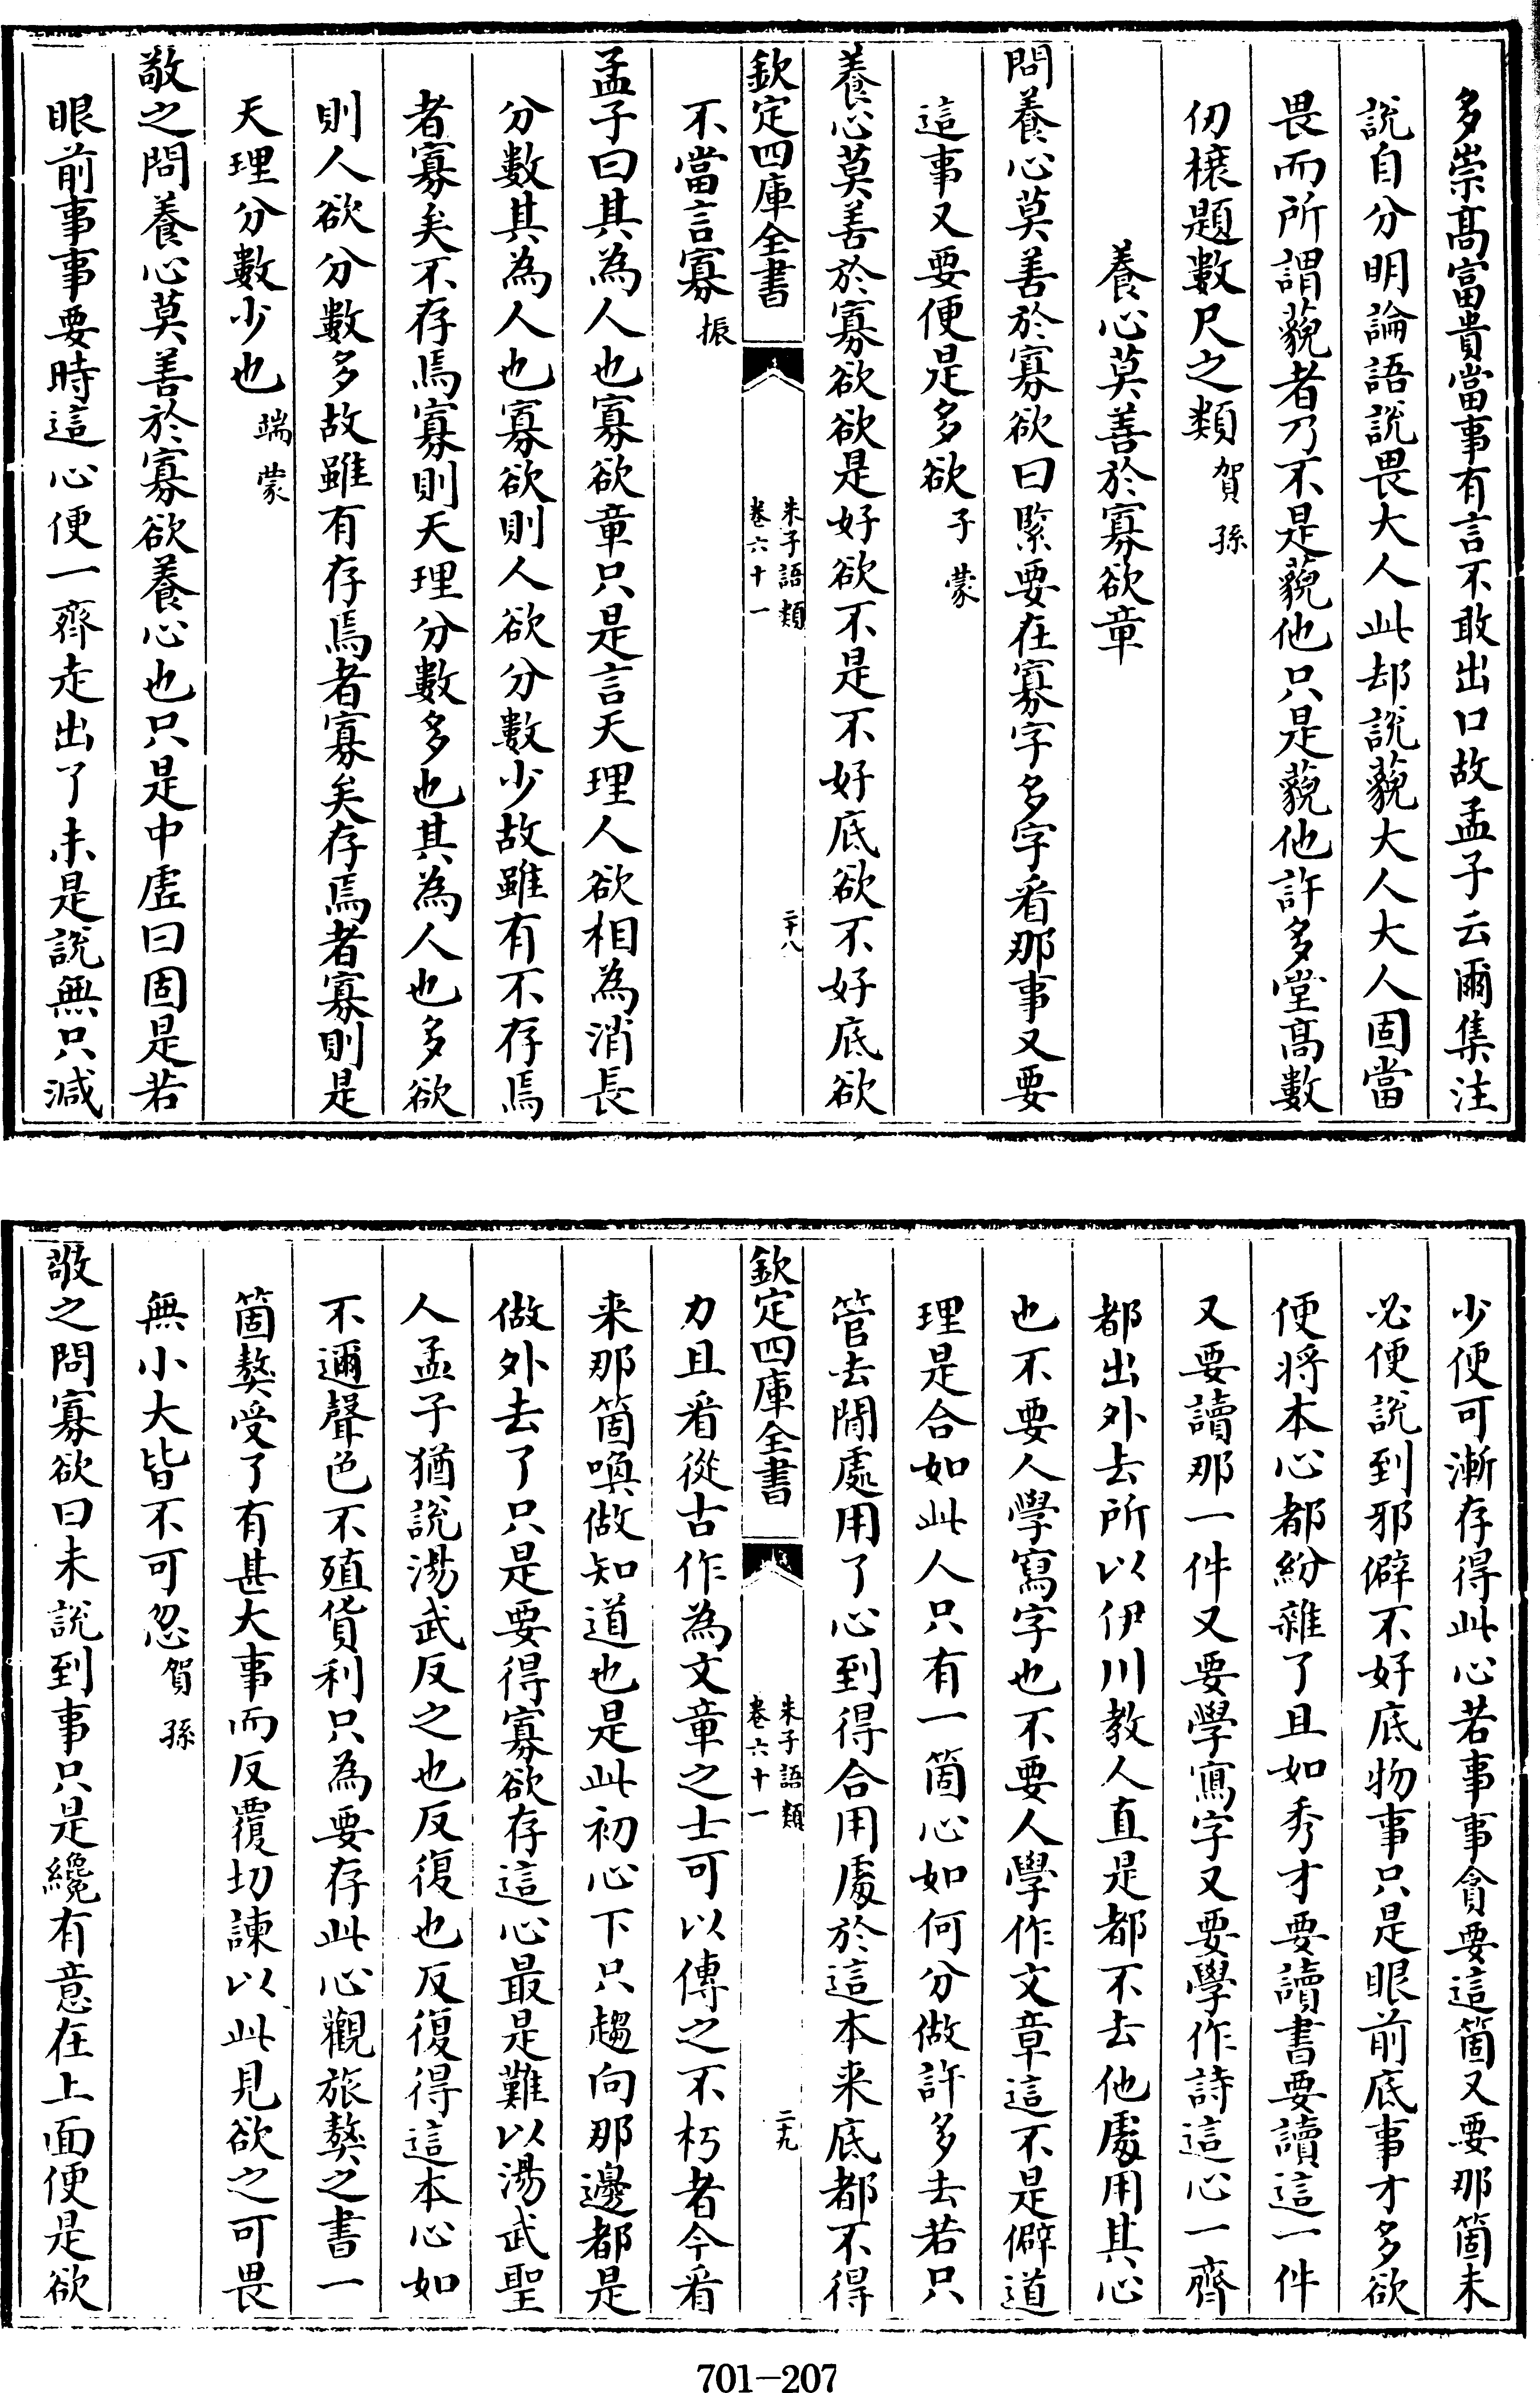 多崇髙富貴當事有言不敢出口故孟子云爾集注
說自分明論語說畏大人此却說藐大人大人固當
畏而所謂藐者乃不是藐他只是藐他許多堂髙數
仞榱題數尺之類賀孫
養心莫善於寡欲章
問養心莫善於寡欲曰緊要在寡字多字看那事又要
這事又要便是多欲子蒙
養心莫善於寡欲欲是好欲不是不好底欲不好底欲
欽定四庫全書
朱子語類
卷六十一
二十八
不當言寡振
孟子曰其為人也寡欲章只是言天理人欲相為消長
分數其為人也寡欲則人欲分數少故雖有不存焉
者寡矣不存焉寡則天理分數多也其為人也多欲
則人欲分數多故雖有存焉者寡矣存焉者寡則是
天理分數少也端蒙
敬之問養心莫善於寡欲養心也只是中虛曰固是若
眼前事事要時這心便一齊走出了未是說無只減
少便可漸存得此心若事事貪要這箇又要那箇未
必便說到邪僻不好底物事只是眼前底事才多欲
便將本心都紛雜了且如秀才要讀書要讀這一件
又要讀那一件又要學寫字又要學作詩這心一齊
都出外去所以伊川教人直是都不去他處用其心
也不要人學寫字也不要人學作文章這不是僻道
理是合如此人只有一箇心如何分做許多去若只
管去閒處用了心到得合用處於這本来底都不得
欽定四庫全書
朱子語類
卷六十一
二十九
力且看從古作為文章之士可以傳之不朽者今看
来那箇喚做知道也是此初心下只趨向那邊都是
做外去了只是要得寡欲存這心最是難以湯武聖
人孟子猶說湯武反之也反復也反復得這本心如
不邇聲色不殖貨利只為要存此心觀旅獒之書一
箇獒受了有甚大事而反覆切諫以此見欲之可畏
無小大皆不可忽賀孫
敬之問寡欲曰未說到事只是纔有意在上面便是欲
701-207